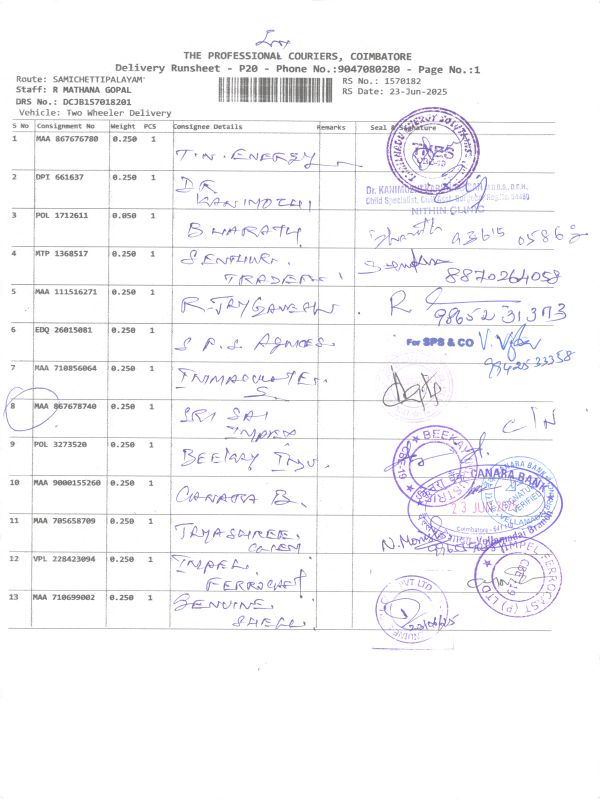 THE PROFESSIONAL COURIERS, COIMBATORE
Delivery Runsheet - P20 - Phone No.:9047080280 - Page No.:1
Route: SAMICHETTIPALAYAM
RS No.: 1570182
Staff: R MATHANA GOPAL
RS Date: 23-Jun-2025
DRS No.: DCJB157018201
Vehicle: Two Wheeler Delivery
S No Consignment No Weight PCS Consignee Details Remarks Seal & Signature
1 MAA 867676780 0.250 1 T.N. ENERGY
2 DPI 661637 0.250 1 DR KANIMOZHI
Dr. KANIMOZHI
Child Specialist
NITHIN CLINIC
3 POL 1712611 0.050 1 BHARATH Bharath
4 MTP 1368517 0.250 1 SENTHUR TRADERS
8870264058
5 MAA 111516271 0.250 1 R. JAYGANESH R
98652 31373
6 EDQ 26015081 0.250 1 S.P.S AGNCES.
For SPS & CO
9942533358
7 MAA 710856064 0.250 1
8 MAA 867678740 0.250 1 SRI SAI IMPEX
C/N
9 POL 3273520 0.250 1 BEEKAY INDU.
10 MAA 9000155260 0.250 1 CANARA B.
CANARA BANK
23 JUN
Vellamadai Branch
11 MAA 705658709 0.250 1 JAYASHREE
12 VPL 228423094 0.250 1 IMPEL FERROCAST
IMPEL FERROCAST (P) LTD
13 MAA 710699002 0.250 1 GENUINE SHELL
23/06/25